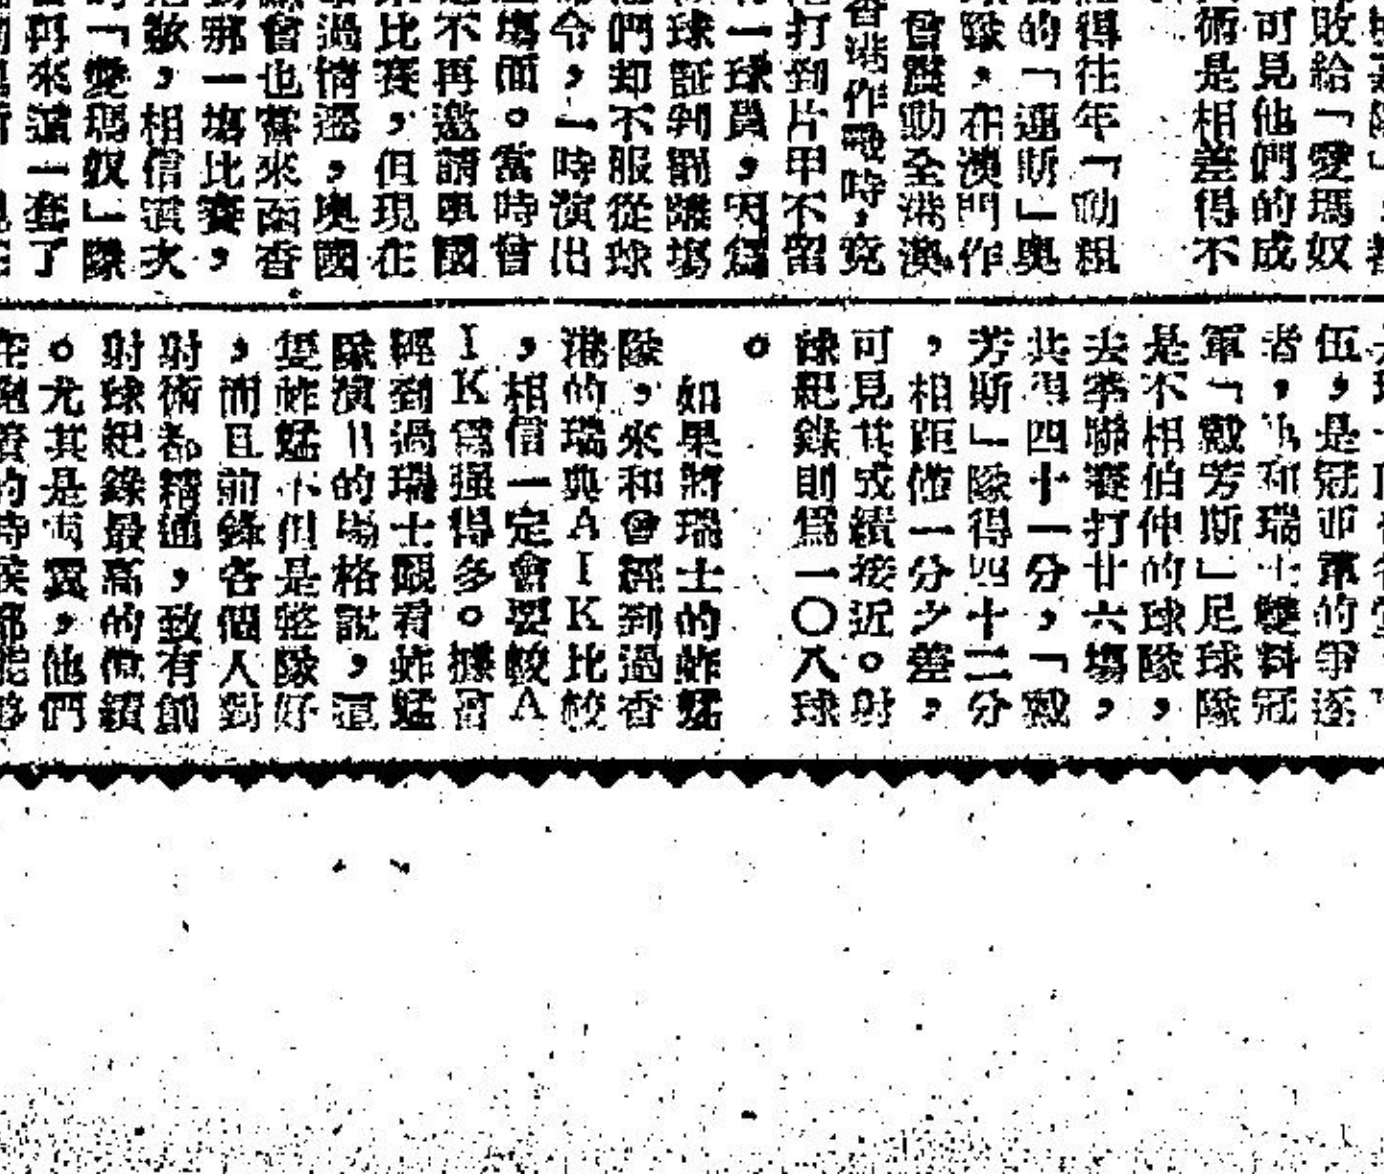 敗給「愛瑪奴
可見他們的成
術是相差得不
得往年「勁粗
的「運斯」奧
隊,在澳門作
曾震動全港澳
香港作戰時,竟
打到片甲不留
一球爲,因爲
球証判罰離塲
們却不服從球
令,一時演出
塲面。當時曾
不再邀請奧國
比賽,但現在
過情遷,奧國
會也當來函香
那一塲比賽,
敵,相信這次
「愛瑪奴」隊
再來這一套了
伍,是冠亞軍的爭逐
者,他和瑞士雙料冠
軍「戴芳斯」足球隊
是不相伯仲的球隊,
去季聯賽打廿六塲,
共得四十一分,「戴
芳斯」隊得四十二分
,相距僅一分之差,
可見其成績接近。射
球紀錄則爲一〇八球
。
如果將瑞士的蚱蜢
隊,來和曾經到過香
港的瑞典AIK比較
,相信一定會要較A
IK爲强得多。據曾
經到過瑞士眼看蚱蜢
隊演出的塲格說,這
隻蚱蜢不但是整隊好
,而且前鋒各個人對
射術都精通,致有創
射球紀錄最高的成績
。尤其是兩翼,他們